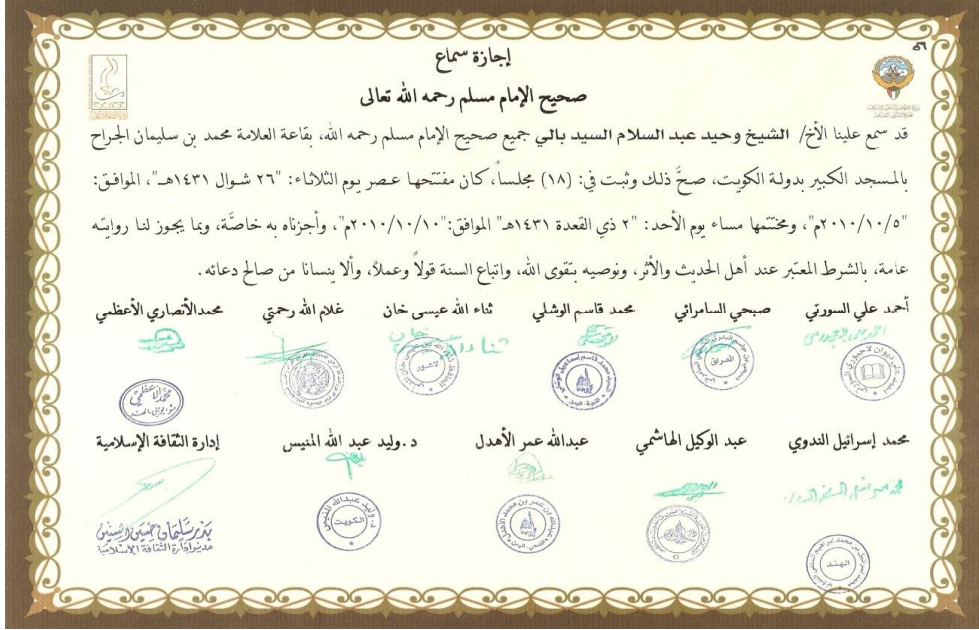 ٥٦
إجازة سماع
صحيح الإمام مسلم رحمه الله تعالى
قد سمع علينا الأخ/ الشيخ وحيد عبد السلام السيد بالي جميع صحيح الإمام مسلم رحمه الله، بقاعة العلامة محمد بن سليمان الجراح
بالمسجد الكبير بدولة الكويت، صحَّ ذلك وثبت في: (١٨) مجلساً، كان مفتتحها عصر يوم الثلاثاء: "٢٦ شوال ١٤٣١هـ"، الموافق:
"٢٠١٠/١٠/٥م"، ومختتمها مساء يوم الأحد: "٢ ذي القعدة ١٤٣١هـ" الموافق: "٢٠١٠/١٠/١٠م"، وأجزناه به خاصَّة، وبما يجوز لنا روايته
عامة، بالشرط المعتبر عند أهل الحديث والأثر، ونوصيه بتقوى الله، واتباع السنة قولاً وعملاً، وألا ينسانا من صالح دعائه.
أحمد علي السورتي صبحي السامرائي محمد قاسم الوشلي ثناء الله عيسى خان غلام الله رحمتي محمد الأنصاري الأعظمي
العراق
لاهور
محمد إسرائيل الندوي عبد الوكيل الهاشمي عبدالله عمر الأهدل د.وليد عبد الله المنيس إدارة الثقافة الإسلامية
د. وليد عبدالله المنيس
الكويت
الهند
مدير إدارة الثقافة الإسلامية